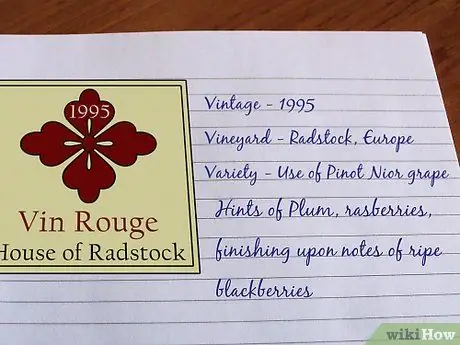 1995
Vin Rouge
House of Radstock
Vintage - 1995
Vineyard - Radstock, Europe
Variety - Use of Pinot Nior grape
Hints of Plum, rasberries,
finishing upon notes of ripe
blackberries
wikiHow